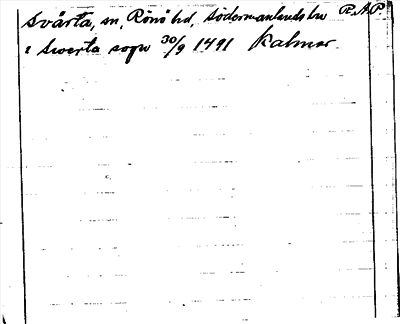 Svärta, sn, Rönö hd, Södermanlands län R.A.P.
i Swerta sogn 30/9 1491 Kalmar.